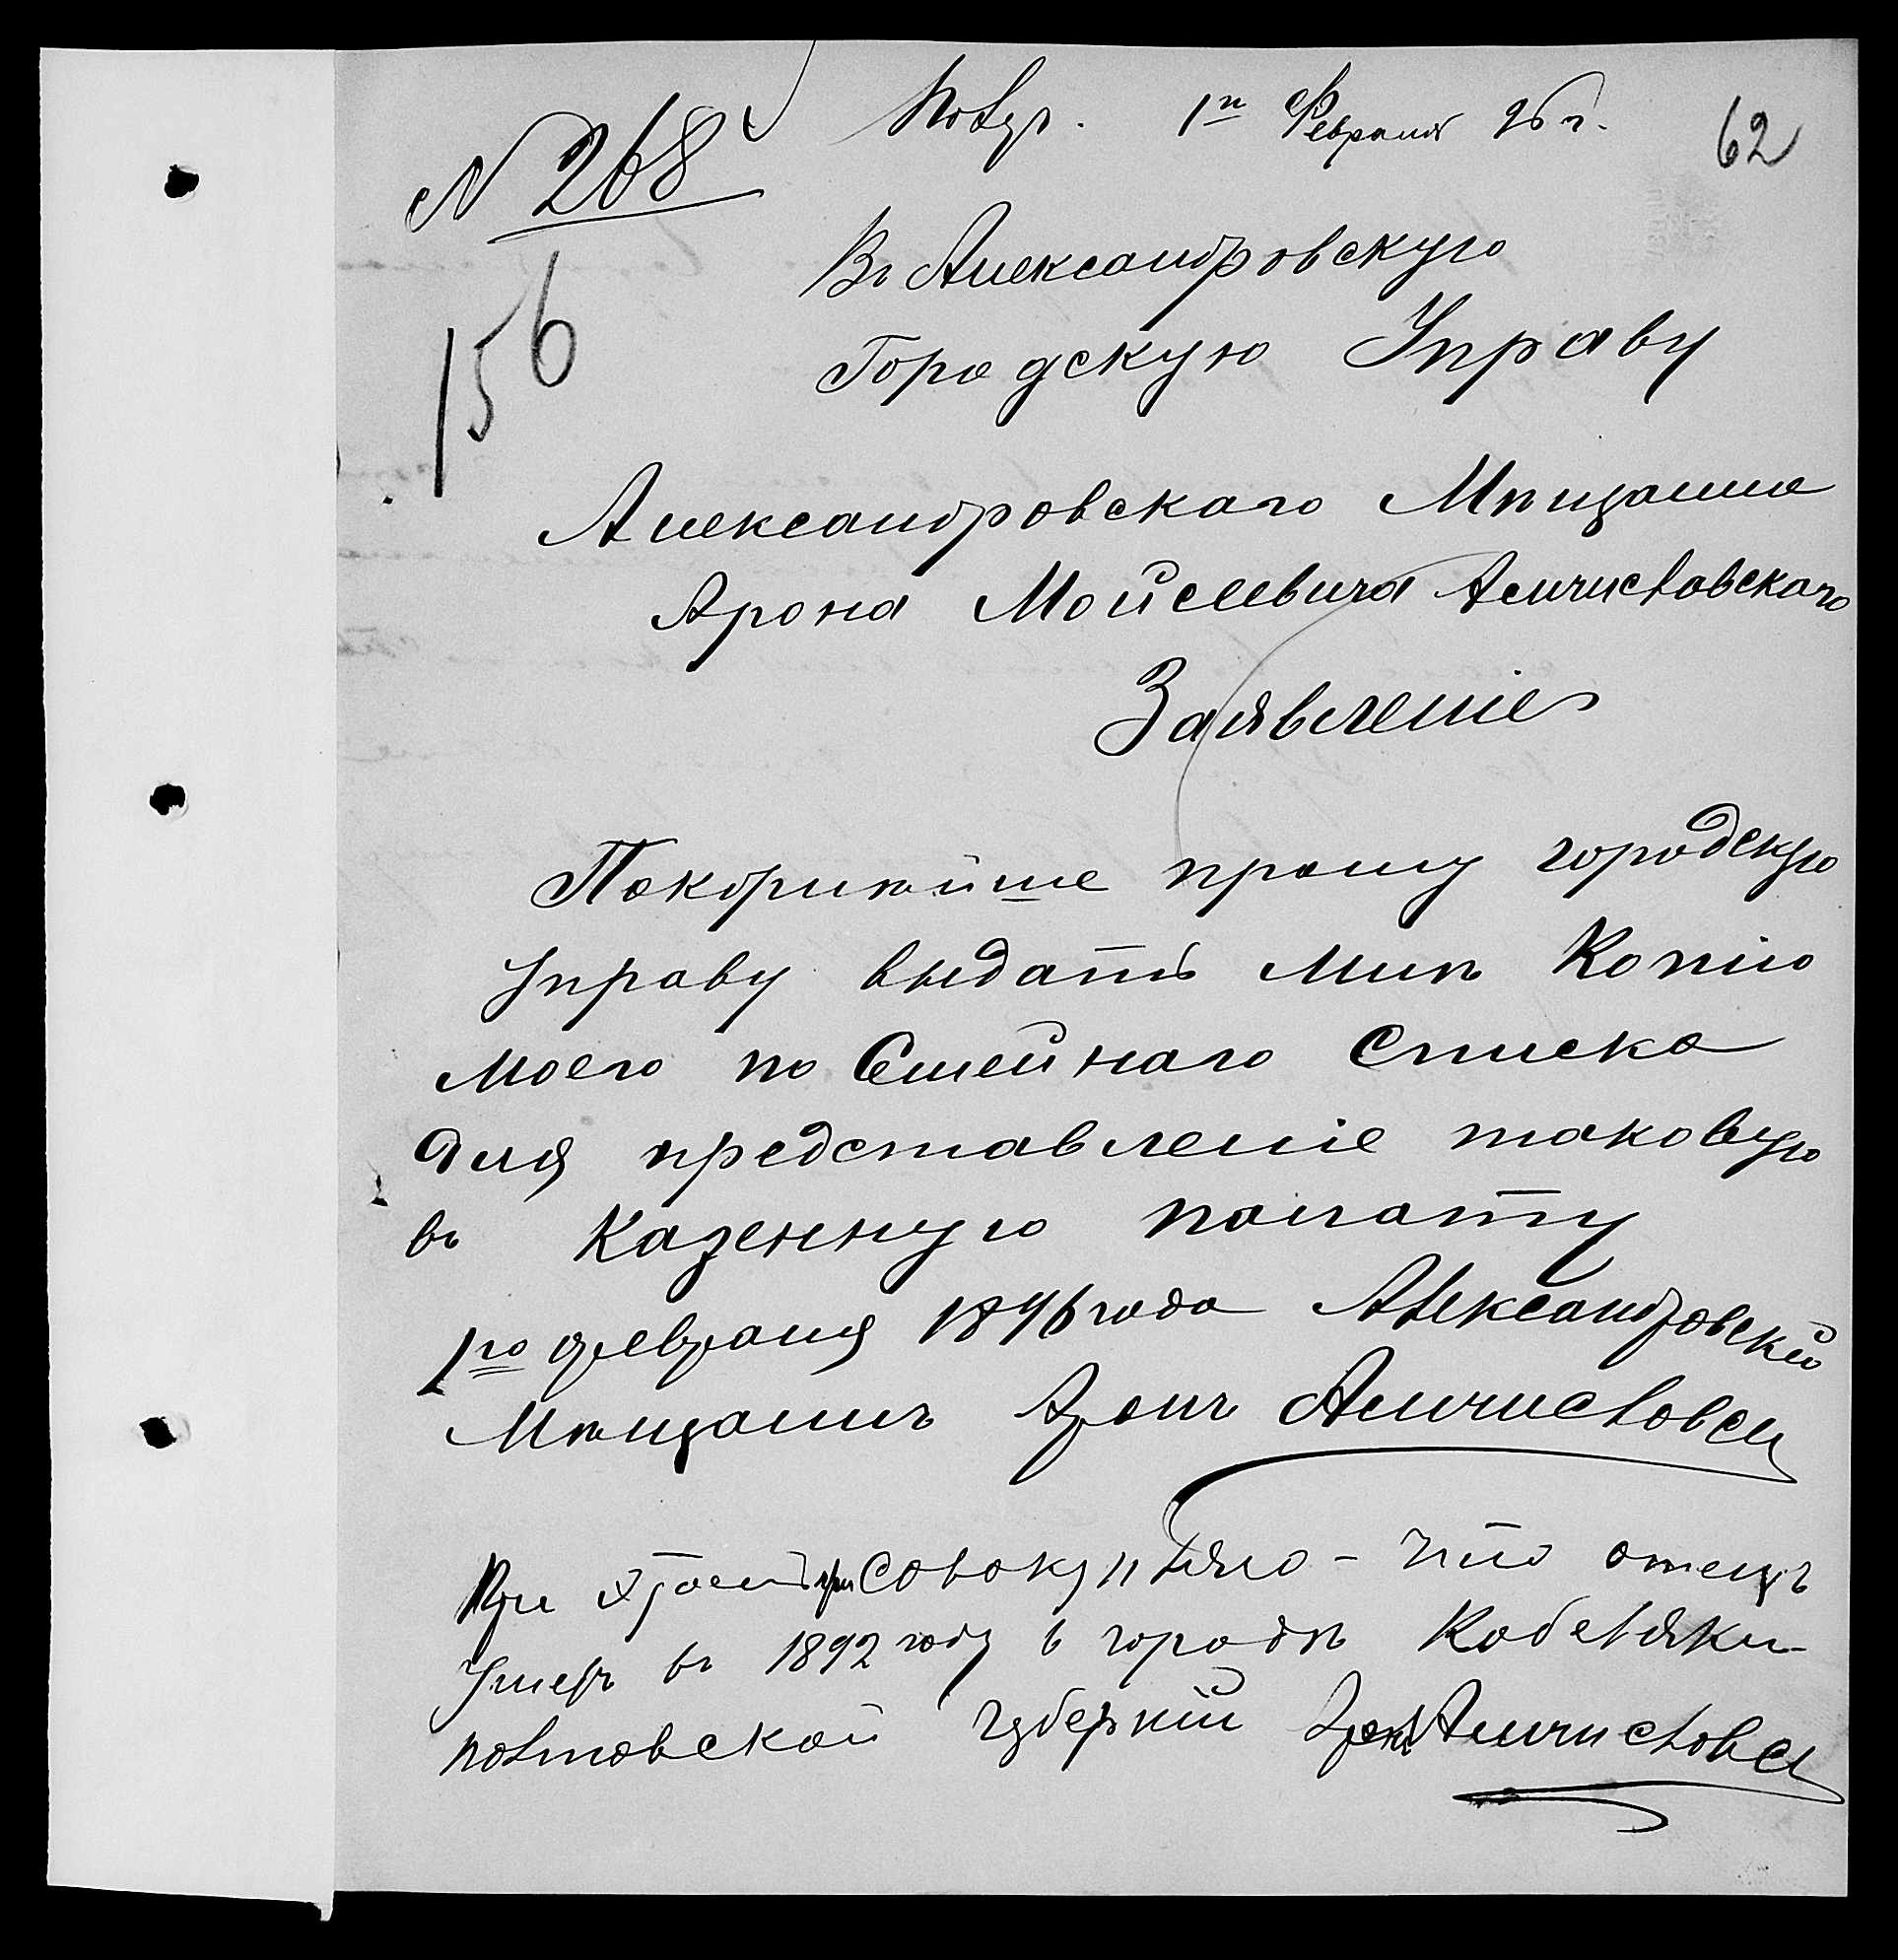 Получ. 1го Февраля 96 г. 62
№ 268
156
Въ Александровскую
Городскую Управу
Александровскаго Мѣщанина
Арона Мойсеевича Амчиславскаго
Заявленіе
Покорнѣйше прошу городскую
Управу выдать мнѣ Копію
моего по Семейнаго Списка
для представленіе таковую
въ Казенную полату
1го февраля 1896 года Александровскій
Мѣщанинъ Аронъ Амчиславскі
При присовокупляю - что отецъ
Умеръ въ 1892 году в городѣ Кобеляки
полтовской губерніи Аронъ Амчиславскі